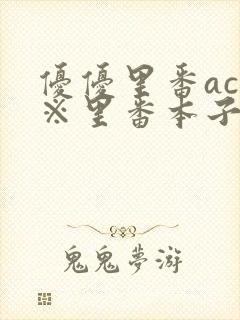 優優里番ac
※里番本子
鬼鬼夢游